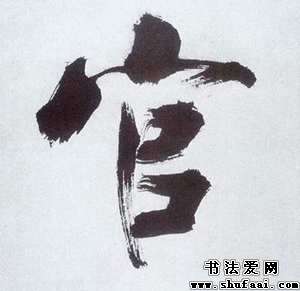 官
书法爱网
www.shufaai.com